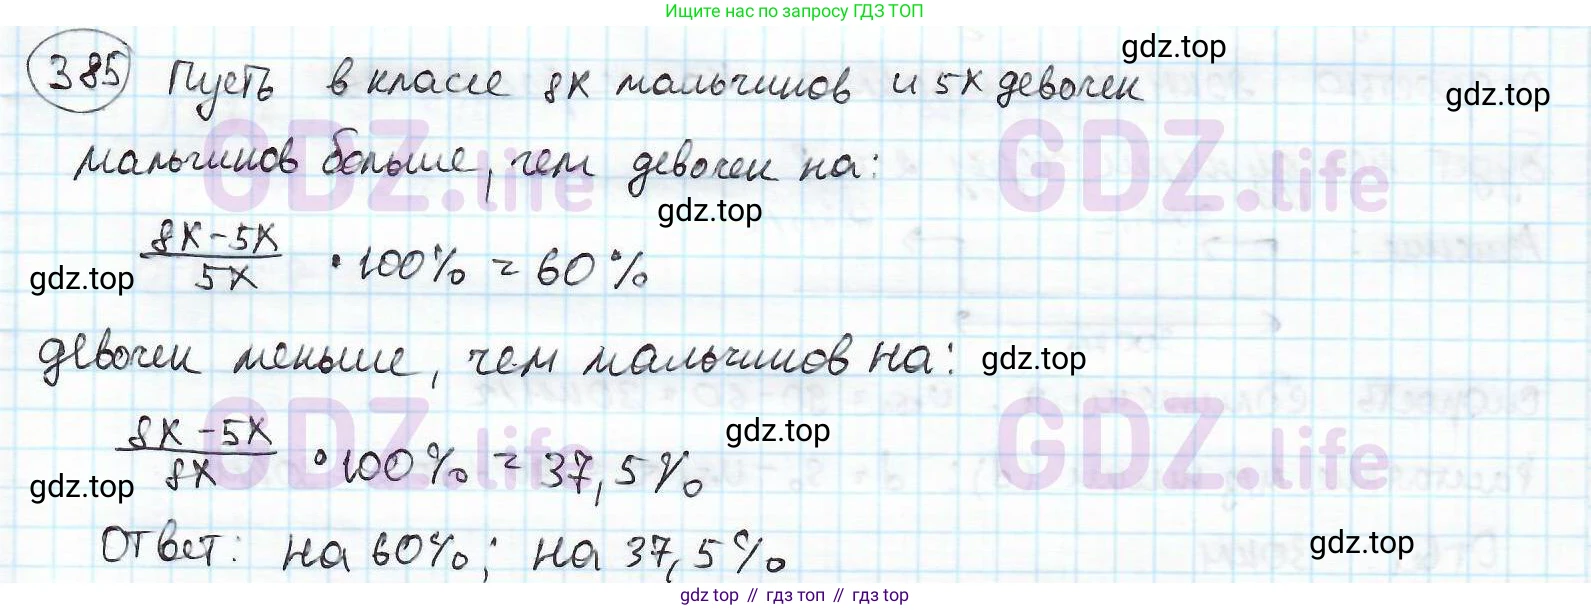 Ищите нас по запросу ГДЗ ТОП
385 Пусть в классе 8х мальчиков и 5х девочек
gdz.top
gdz.top
GDZ.life
GDZ.life
мальчиков больше, чем девочек на:
gdz.top
8х - 5х / 5х · 100% = 60%
gdz.top
девочек меньше, чем мальчиков на:
gdz.top
GDZ.life
GDZ.life
8х - 5х / 8х · 100% = 37,5%
gdz.top
gdz.top
Ответ: на 60%; на 37,5%
gdz.top
gdz top // гдз топ // гдз top